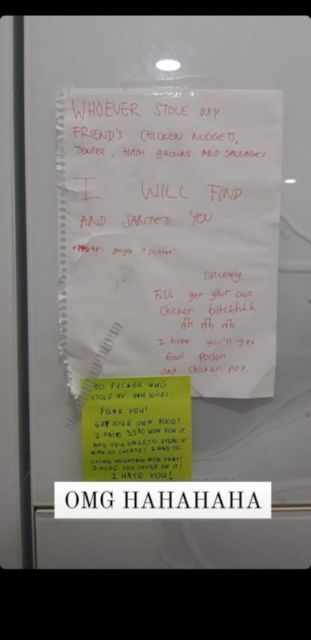 WHOEVER STOLE MY
FRIEND'S CHICKEN NUGGETS,
TENDER, HASH BROWNS AND SAUSAGES
I WILL FIND
AND SANTET YOU
google "santet"
Sincerely,
F.U. get your own
chicken bitchhhh
I hope you'll get
food poison
and chicken pox.
TO FUCKER WHO
STOLE MY HAM SLICES:
FUCK YOU!
GET YOUR OWN FOOD!
I PAID 3380 WON FOR IT
AND YOU DARE TO STEAL IT
I HAD TO
CLIMB MOUNTAIN FOR THAT!
I HOPE YOU CHOKE ON IT!
I HATE YOU!
OMG HAHAHAHA